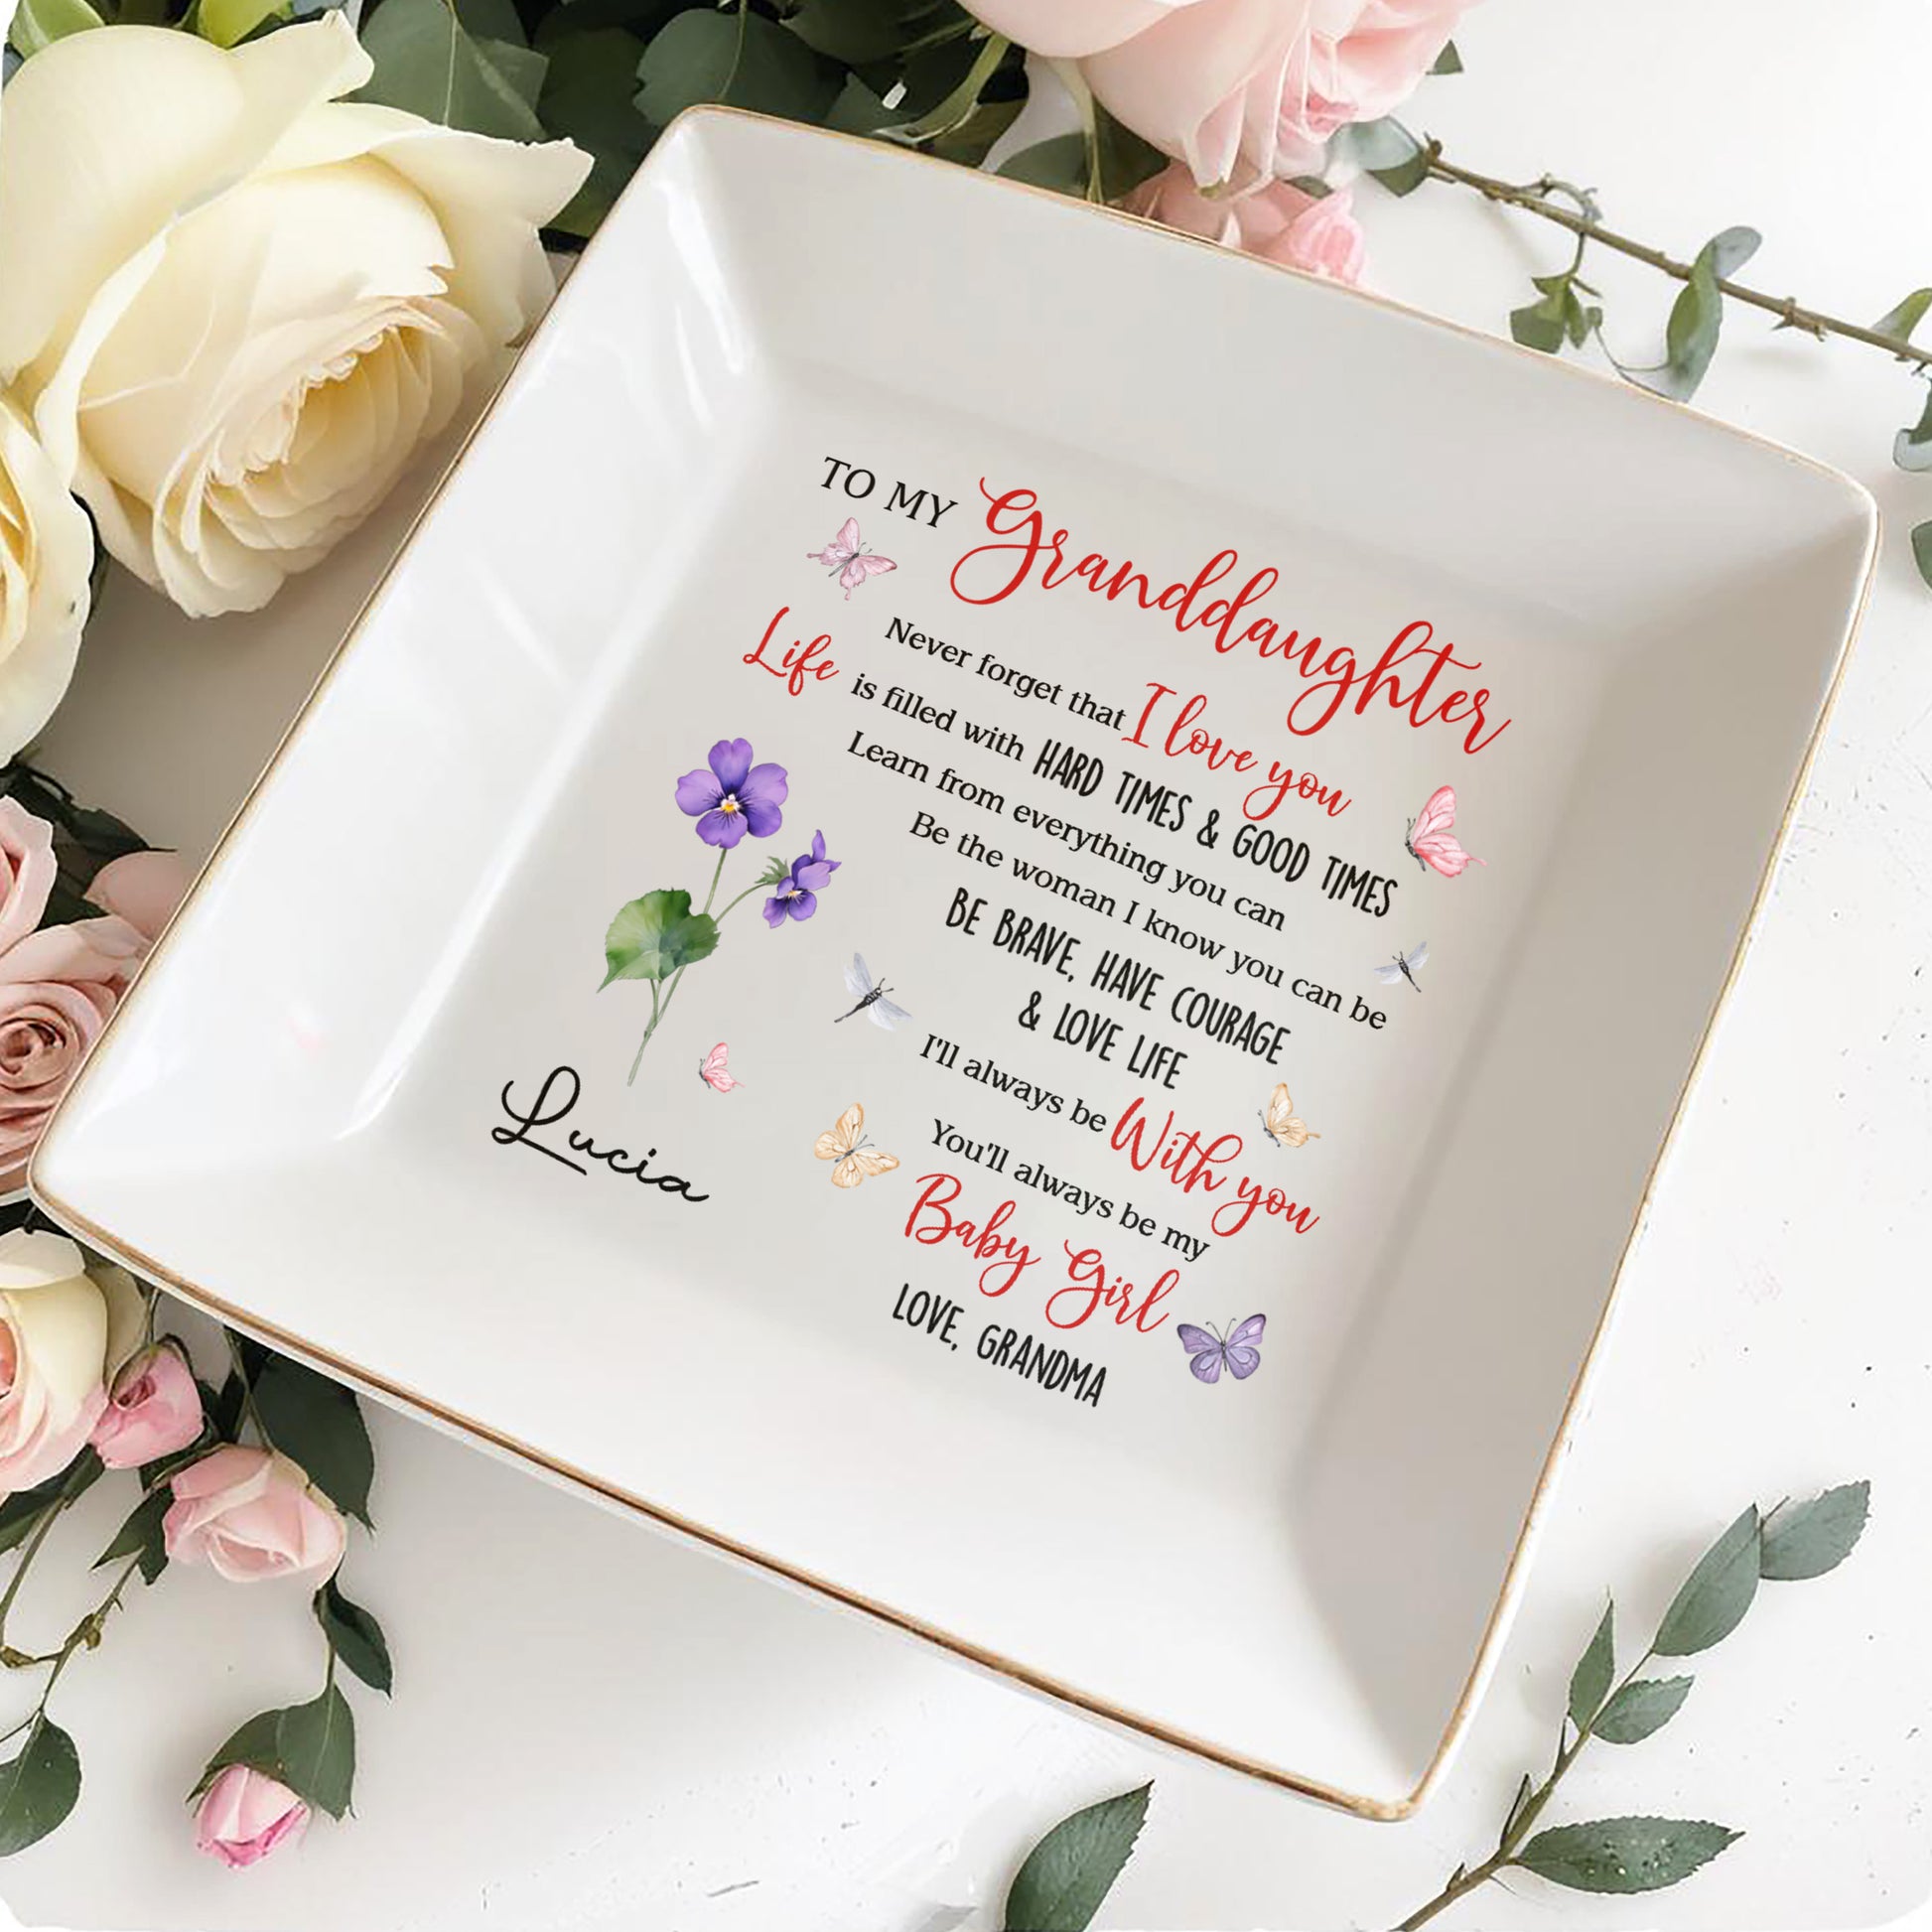 TO MY Granddaughter
Never forget that I love you
Life is filled with HARD TIMES & GOOD TIMES
Learn from everything you can
Be the woman I know you can be
BE BRAVE, HAVE COURAGE
& LOVE LIFE
I'll always be With you
You'll always be my
Baby Girl
LOVE, GRANDMA
Lucia